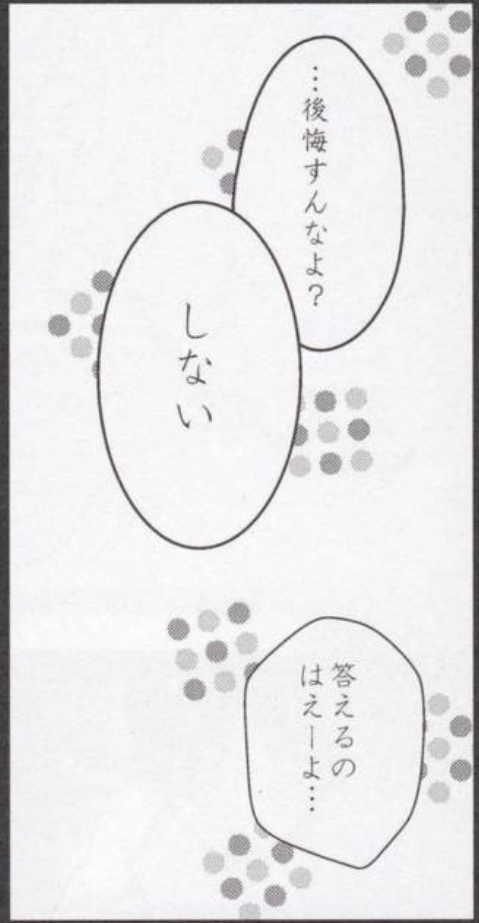 …後悔すんなよ？
しない
答えるの
はえーよ…